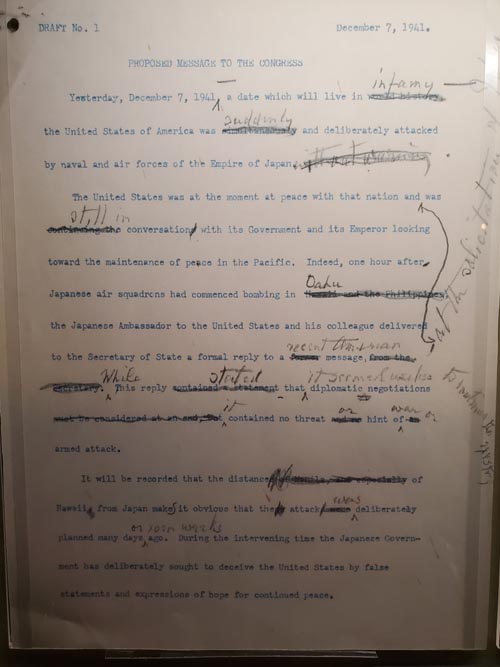 DRAFT No. 1 December 7, 1941.
PROPOSED MESSAGE TO THE CONGRESS
infamy
Yesterday, December 7, 1941, a date which will live in world history
suddenly
the United States of America was simultaneously and deliberately attacked
by naval and air forces of the Empire of Japan. without warning
The United States was at the moment at peace with that nation and was
still in
continuing the conversation with its Government and its Emperor looking
toward the maintenance of peace in the Pacific. Indeed, one hour after
Oahu
Japanese air squadrons had commenced bombing in Hawaii and the Philippines,
the Japanese Ambassador to the United States and his colleague delivered
recent American
to the Secretary of State a formal reply to a former message, from the
While stated it seemed useless
Secretary. This reply contained a statement that diplomatic negotiations
it or war or
must be considered at an end, but contained no threat and no hint of an
armed attack.
It will be recorded that the distance Manila, and especially of
were
Hawaii, from Japan makes it obvious that the attack were deliberately
or even weeks
planned many days ago. During the intervening time the Japanese Govern-
ment has deliberately sought to deceive the United States by false
statements and expressions of hope for continued peace.
at the solicitation of
to continue